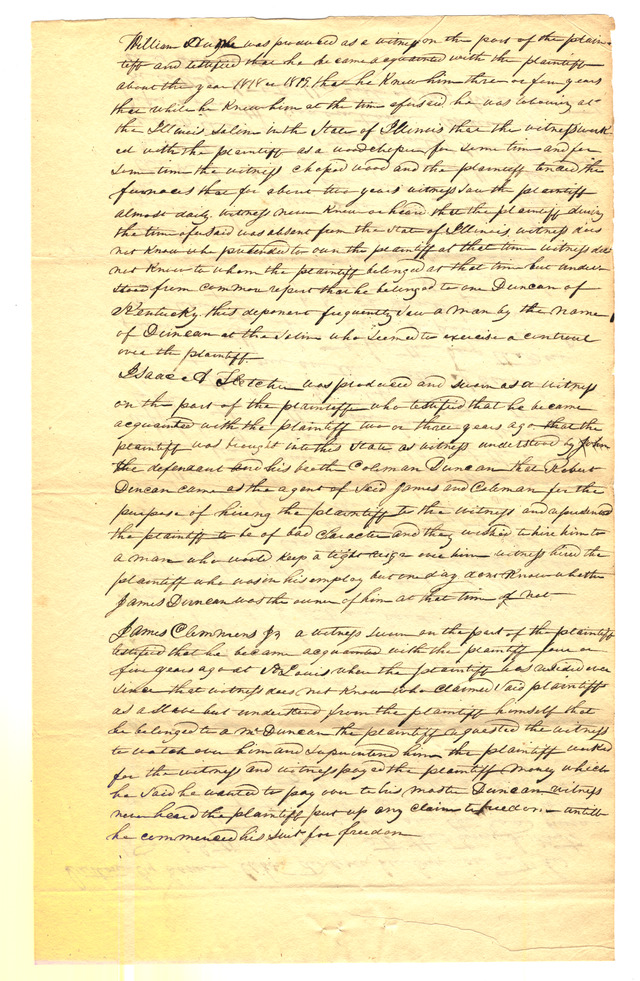 William Hughe was produced as a witness on the part of the plain-
tiff and testified that he became acquainted with the plaintiff
about the year 1818 or 1819, that he knew him three or four years
that while he knew him at the time aforesaid he was laboring at
the Illinois Salin in the State of Illinois that the witness work
ed with the plaintiff as a woodchoper for some time and for
some time the witness choped wood and the plaintiff tended the
furnaces that for about two years witness saw the plaintiff
almost daily. witness never knew or heard that the plaintiff during
the time aforesaid was absent from the State of Illinois witness does
not know who pretended to own the plaintiff at that time witness did
not know to whom the plaintiff belonged at that time but under
stood from common report that he belonged to one Duncan of
Kentucky this deponent frequently saw a man by the name
of Duncan at the Salin who seemed to exercise a controul
over the plaintiff.
Isaac A Fletcher was produced and sworn as a witness
on the part of the plaintiff who testified that he became
acquainted with the plaintiff two or three years ago that the
plaintiff was brought into this State as witness understood by John
the defendant and his broth Coleman Duncan that Robert
Duncan came as the agent of said James and Coleman for the
purpose of hireing the plaintiff to the witness and represented
the plaintiff to be of bad character and they wished to hire him to
a man who would keep a tight reign over him witness hired the
plaintiff who was in his employ but one day dont know whether
James Duncan was the owner of him at that time or not
James Clemmens Jr a witness sworn on the part of the plaintiff
testified that he became acquainted with the plaintiff four or
five years ago at St Louis when the plaintiff has resided ever
since that witness does not know who claimed said plaintiff
as a slave but understood from the plaintiff himself that
he belonged to a Mr Duncan the plaintiff requested the witness
to watch over him and superintend him the plaintiff worked
for the witness and witness payed the plaintiff money which
he said he wanted to pay over to his master Duncan witness
never heard the plaintiff put up any claim to freedom untill
he commenced his suit for freedom